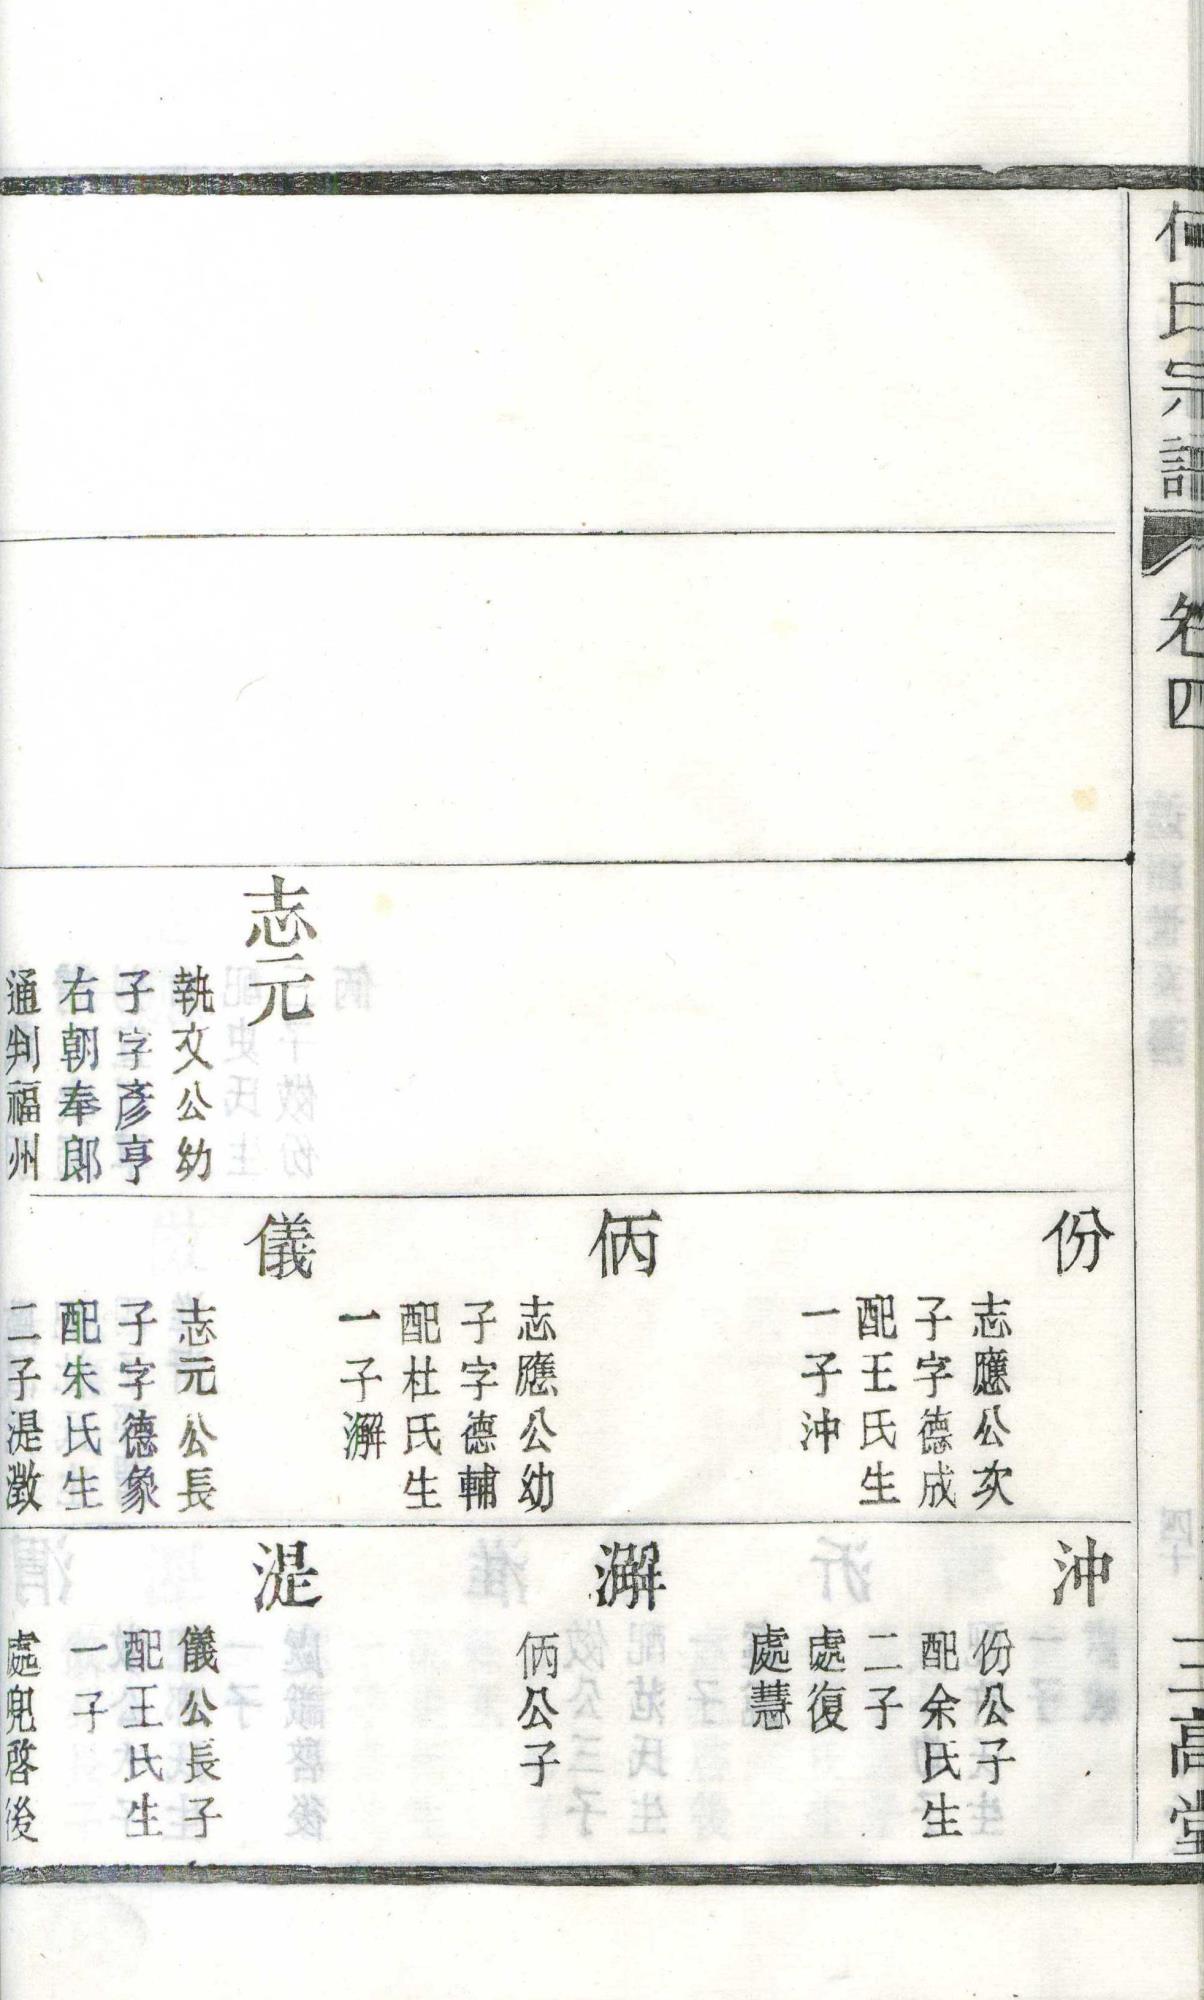 何氏宗譜
卷四
三高堂
志元
執文公幼
子字彥亨
右朝奉郎
通判福州
份
志應公次
子字德成
配王氏生
一子沖
侽
志應公幼
子字德輔
配杜氏生
一子澥
儀
志元公長
子字德象
配朱氏生
二子湜澂
沖
份公子
配余氏生
二子
處復
處慧
澥
侽公子
湜
儀公長子
配王氏生
一子
處㒵啓後